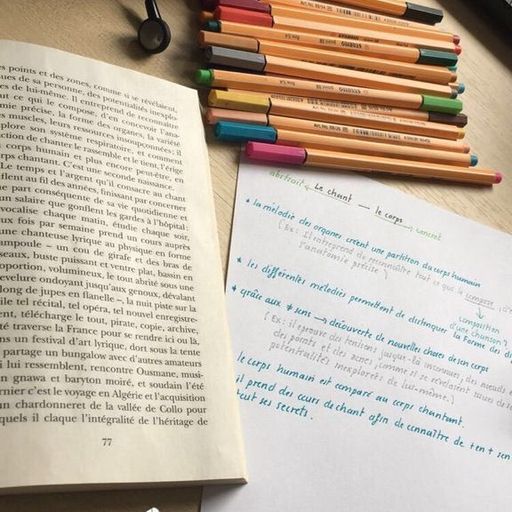 es points et des zones, comme si se révélaient,
ues de sa personne, des potentialités inexplo-
es de lui-même. Il entreprend de reconnaître
out ce qui le compose, d'en concevoir l'ana-
mie précise, la forme des organes, la variété
s muscles, leurs ressources insoupçonnées; il
plore son système respiratoire, et comment
ction de chanter le rassemble et le tient, l'érige
corps humain et plus encore peut-être, en
rps chantant. C'est une seconde naissance.
Le temps et l'argent qu'il consacre au chant
flent au fil des années, finissant par concerner
e part conséquente de sa vie quotidienne et
un salaire que gonflent les gardes à l'hôpital:
vocalise chaque matin, étudie chaque soir,
ux fois par semaine prend un cours auprès
une chanteuse lyrique au physique en forme
ampoule – un cou de girafe et des bras de
seaux, buste puissant et ventre plat, bassin en
oportion, volumineux, le tout abrité sous une
evelure ondoyant jusqu'aux genoux, dévalant
long de jupes en flanelle –, la nuit piste sur la
ile tel récital, tel opéra, tel nouvel enregistre-
ent, télécharge le tout, pirate, copie, archive,
té traverse la France pour se rendre ici ou là,
ns un festival d'art lyrique, dort sous la tente
partage un bungalow avec d'autres amateurs
i lui ressemblent, rencontre Ousmane, musi-
n gnawa et baryton moiré, et soudain l'été
rnier c'est le voyage en Algérie et l'acquisition
n chardonneret de la vallée de Collo pour
quels il claque l'intégralité de l'héritage de
77
abstrait Le chant — le corps
concret
* la mélodie des organes créent une partition du corps humain
[Ex: Il entreprend de reconnaître tout ce qui le compose, d'
l'anatomie précise]
composition
d'une chanson?
* les différentes mélodies permettent de distinguer la forme des
* grâce aux ≠ sens → découverte de nouvelles choses de son corps
[Ex: il éprouve des tensions jusque-là inconnues, des nœuds
des points et des zones, comme si se révélaient
potentialités inexplorées de lui-même.]
le corps humain est comparé au corps chantant.
il prend des cours de chant afin de connaître de + en + son
tout ses secrets.